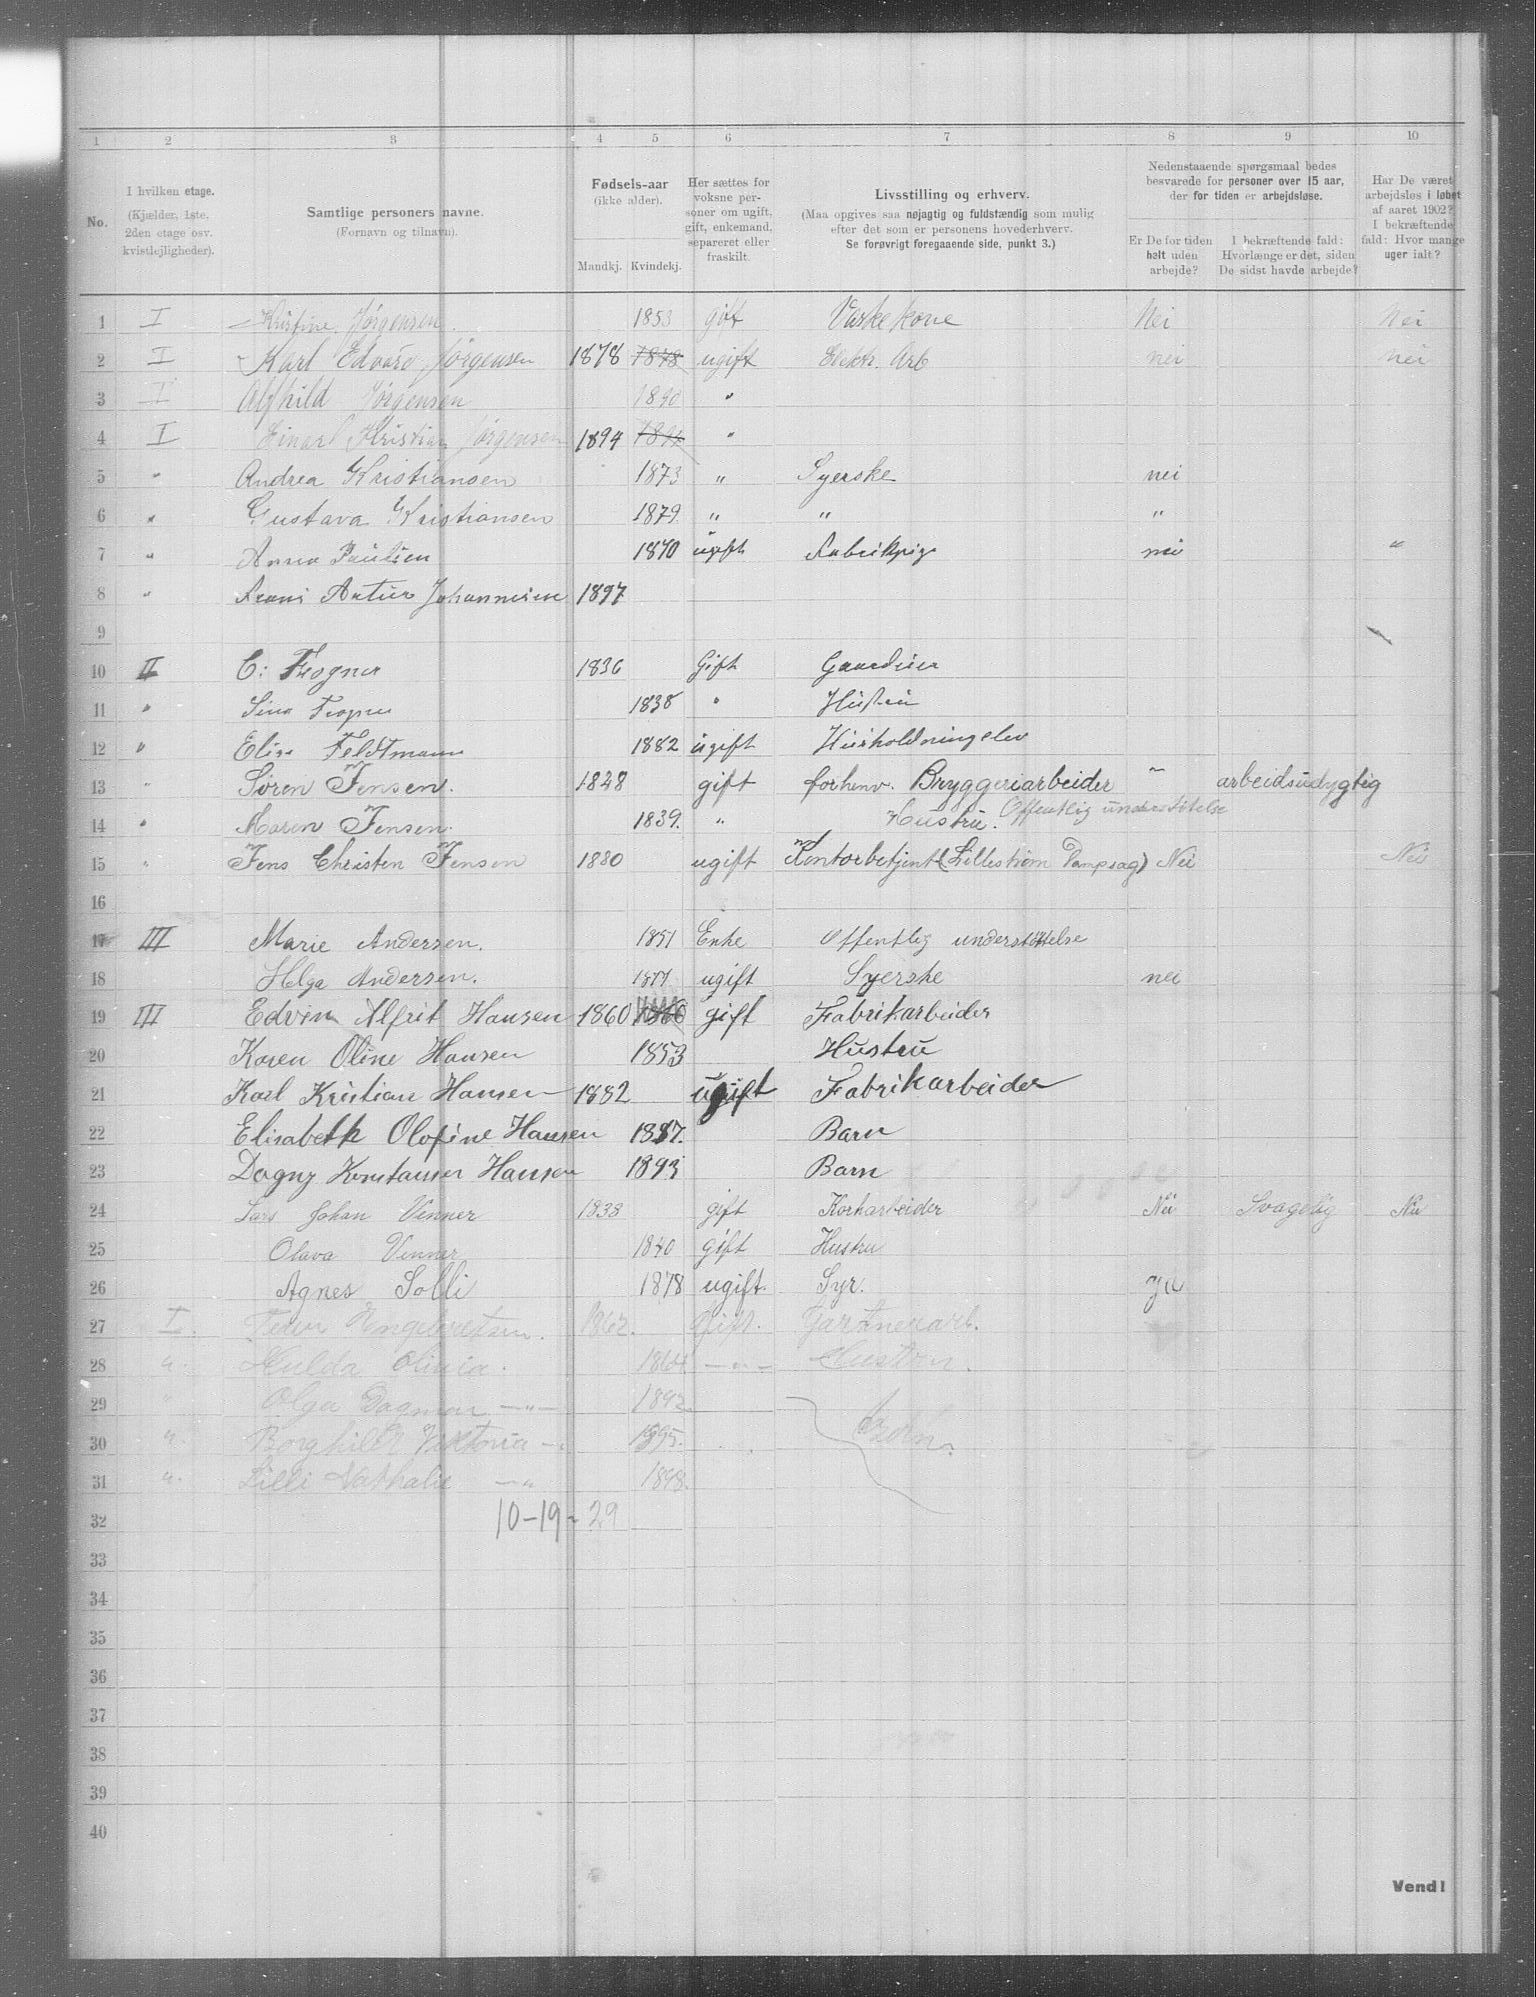 1 2 3 4 5 6 7 8 9 10
No.
I hvilken etage.
(Kjælder, 1ste.
2den etage osv.
kvistlejligheder).
Samtlige personers navne.
(Fornavn og tilnavn).
Fødsels-aar
(ikke alder).
Mandkj. Kvindekj.
Her sættes for
voksne per-
soner om ugift,
gift, enkemand,
separeret eller
fraskilt.
Livsstilling og erhverv.
(Maa opgives saa nøjagtig og fuldstændig som mulig
efter det som er personens hovederhverv.
Se forøvrigt foregaaende side, punkt 3.)
Nedenstaaende spørgsmaal bedes
besvarede for personer over 15 aar,
der for tiden er arbejdsløse.
Er De for tiden
helt uden
arbejde?
I bekræftende fald:
Hvorlænge er det, siden
De sidst havde arbejde?
Har De været
arbejdsløs i løbet
af aaret 1902?
I bekræftende
fald: Hvor mange
uger ialt?
1 I Kristine Jørgensen 1853 gift Vaskekone Nei Nei
2 I Karl Edvard Jørgensen 1878 1878 ugift Elektr. Arb nei nei
3 I Alfhild Jørgensen 1890 "
4 I Einar Kristian Jørgensen 1894 1894 "
5 " Andrea Kristiansen 1873 " Syerske nei
6 " Gustava Kristiansen 1879 " " "
7 " Anna Paulsen 1870 ugift Fabrikpige nei "
8 " Frans Artur Johannesen 1897
9
10 II C: Frogner 1836 Gift Gaardeier
11 " Sina Frogner 1838 " Hustru
12 " Elise Feldtmann 1882 ugift Husholdningelev
13 " Søren Jensen. 1828 gift forhenv. Bryggeriarbeider " arbeidsudygtig
14 " Maren Jensen. 1839. " Hustru. Offentlig understøtelse
15 " Jens Christen Jensen 1880 ugift Kontorbetjent (Lillestrøm Dampsag) Nei Nei
16
17 III Marie Andersen. 1851 Enke Offentlig understøttelse
18 Helga Andersen. 1877 ugift Syerske nei
19 III Edvin Alfrit Hansen 1860 1860 gift Fabrikarbeider
20 Karen Oline Hansen 1853 Hustru
21 Karl Kristian Hansen 1882 ugift Fabrikarbeider
22 Elisabeth Olofine Hansen 1887. Barn
23 Dagny Konstanser Hansen 1893 Barn
24 Lars Johan Venner 1838 gift Korkarbeider Nei Svagelig Nei
25 Olava Venner 1840 gift Hustru
26 Agnes Solli 1878 ugift. Syr. Ja
27 I. Peder Engebretsen. 1862. Gift. Gartnerarb.
28 ". Hulda Olivia. 1864 —"— Hustru.
29 " Olga Dagmar —"— 1892.
30 ". Borghild Viktoria —" 1895. Børn.
31 ". Lilli Nathalie —" 1898.
32 10-19-29
33
34
35
36
37
38
39
40
Vend!